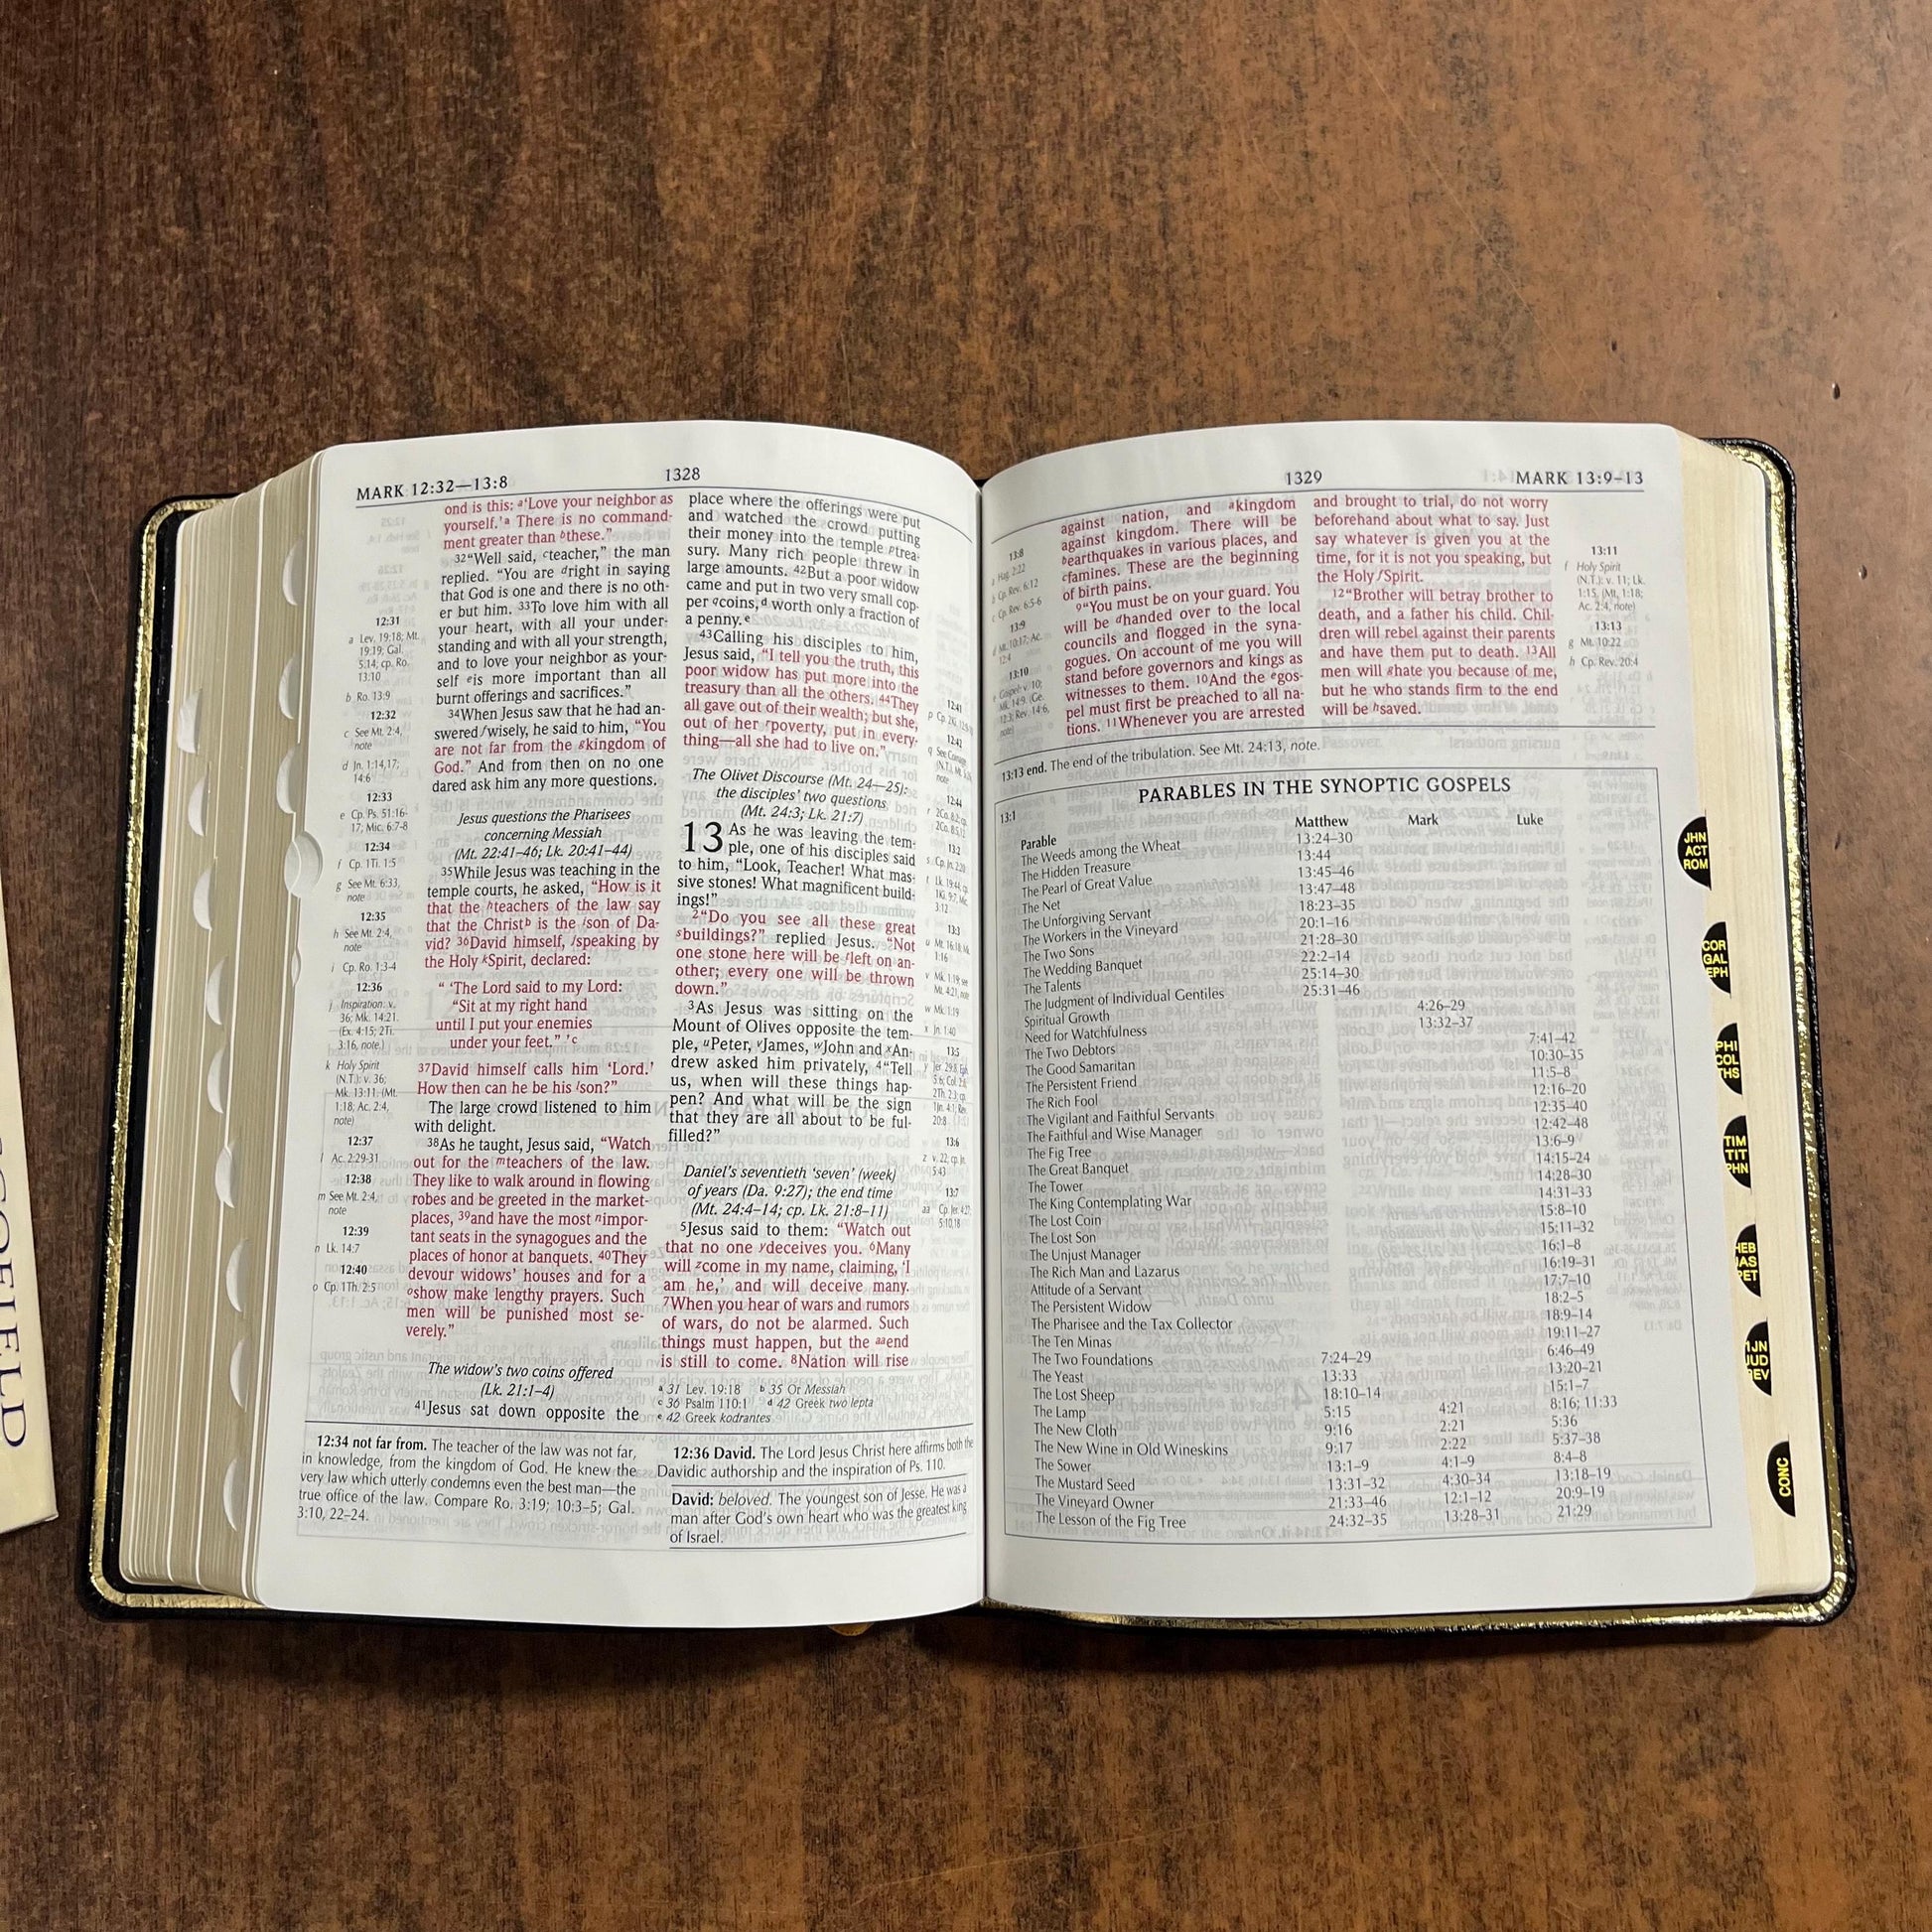 MARK 12:32—13:8
1328
ond is this: a‘Love your neighbor as
yourself.’a There is no command-
ment greater than bthese.”
32“Well said, cteacher,” the man
replied. “You are dright in saying
that God is one and there is no oth-
er but him. 33To love him with all
your heart, with all your under-
standing and with all your strength,
and to love your neighbor as your-
self eis more important than all
burnt offerings and sacrifices.”
34When Jesus saw that he had an-
swered fwisely, he said to him, “You
are not far from the gkingdom of
God.” And from then on no one
dared ask him any more questions.
Jesus questions the Pharisees
concerning Messiah
(Mt. 22:41–46; Lk. 20:41–44)
35While Jesus was teaching in the
temple courts, he asked, “How is it
that the hteachers of the law say
that the Christb is the ison of Da-
vid? 36David himself, jspeaking by
the Holy kSpirit, declared:
“ ‘The Lord said to my Lord:
“Sit at my right hand
until I put your enemies
under your feet.” ’c
37David himself calls him ‘Lord.’
How then can he be his lson?”
The large crowd listened to him
with delight.
38As he taught, Jesus said, “Watch
out for the mteachers of the law.
They like to walk around in flowing
robes and be greeted in the market-
places, 39and have the most nimpor-
tant seats in the synagogues and the
places of honor at banquets. 40They
devour widows’ houses and for a
oshow make lengthy prayers. Such
men will be punished most se-
verely.”
The widow’s two coins offered
(Lk. 21:1–4)
41Jesus sat down opposite the
12:31
a Lev. 19:18; Mt.
19:19; Gal.
5:14; cp. Ro.
13:10
b Ro. 13:9
12:32
c See Mt. 2:4,
note
d Jn. 1:14,17;
14:6
12:33
e Cp. Ps. 51:16-
17; Mic. 6:7-8
12:34
f Cp. 1Ti. 1:5
g See Mt. 6:33,
note
12:35
h See Mt. 2:4,
note
i Cp. Ro. 1:3-4
12:36
j Inspiration: v.
36; Mk. 14:21.
(Ex. 4:15; 2Ti.
3:16, note)
k Holy Spirit
(N.T.): v. 36;
Mk. 13:11. (Mt.
1:18; Ac. 2:4,
note)
12:37
l Ac. 2:29-31
12:38
m See Mt. 2:4,
note
12:39
n Lk. 14:7
12:40
o Cp. 1Th. 2:5
place where the offerings were put
and watched the crowd putting
their money into the temple ptrea-
sury. Many rich people threw in
large amounts. 42But a poor widow
came and put in two very small cop-
per qcoins,d worth only a fraction of
a penny.e
43Calling his disciples to him,
Jesus said, “I tell you the truth, this
poor widow has put more into the
treasury than all the others. 44They
all gave out of their wealth; but she,
out of her rpoverty, put in every-
thing—all she had to live on.”
The Olivet Discourse (Mt. 24—25):
the disciples’ two questions
(Mt. 24:3; Lk. 21:7)
13 As he was leaving the tem-
ple, one of his disciples said
to him, “Look, Teacher! What mas-
sive stones! What magnificent build-
ings!”
2“Do you see all these great
sbuildings?” replied Jesus. “Not
one stone here will be tleft on an-
other; every one will be thrown
down.”
3As Jesus was sitting on the
Mount of Olives opposite the tem-
ple, uPeter, vJames, wJohn and xAn-
drew asked him privately, 4“Tell
us, when will these things hap-
pen? And what will be the sign
that they are all about to be ful-
filled?”
Daniel’s seventieth ‘seven’ (week)
of years (Da. 9:27); the end time
(Mt. 24:4–14; cp. Lk. 21:8–11)
5Jesus said to them: “Watch out
that no one ydeceives you. 6Many
will zcome in my name, claiming, ‘I
am he,’ and will deceive many.
7When you hear of wars and rumors
of wars, do not be alarmed. Such
things must happen, but the aaend
is still to come. 8Nation will rise
a 31 Lev. 19:18 b 35 Or Messiah
c 36 Psalm 110:1 d 42 Greek two lepta
e 42 Greek kodrantes
12:41
12:42
12:44
13:2
13:3
w Mk. 1:19
x Jn. 1:40
13:5
13:6
13:7
12:34 not far from. The teacher of the law was not far,
in knowledge, from the kingdom of God. He knew the
very law which utterly condemns even the best man—the
true office of the law. Compare Ro. 3:19; 10:3–5; Gal.
3:10, 22–24.
12:36 David. The Lord Jesus Christ here affirms both the
Davidic authorship and the inspiration of Ps. 110.
David: beloved. The youngest son of Jesse. He was a
man after God’s own heart who was the greatest king
of Israel.
1329
MARK 13:9–13
13:8
a Hag. 2:22
b Cp. Rev. 6:12
c Cp. Rev. 6:5-6
13:9
d Mt. 10:17; Ac.
12:4
13:10
against nation, and akingdom
against kingdom. There will be
bearthquakes in various places, and
cfamines. These are the beginning
of birth pains.
9“You must be on your guard. You
will be dhanded over to the local
councils and flogged in the syna-
gogues. On account of me you will
stand before governors and kings as
witnesses to them. 10And the egos-
pel must first be preached to all na-
tions. 11Whenever you are arrested
and brought to trial, do not worry
beforehand about what to say. Just
say whatever is given you at the
time, for it is not you speaking, but
the Holy fSpirit.
12“Brother will betray brother to
death, and a father his child. Chil-
dren will rebel against their parents
and have them put to death. 13All
men will ghate you because of me,
but he who stands firm to the end
will be hsaved.
13:11
f Holy Spirit
(N.T.): v. 11; Lk.
1:15. (Mt. 1:18;
Ac. 2:4, note)
13:13
g Mt. 10:22
h Cp. Rev. 20:4
13:13 end. The end of the tribulation. See Mt. 24:13, note.
13:1
PARABLES IN THE SYNOPTIC GOSPELS
Parable Matthew Mark Luke
The Weeds among the Wheat 13:24–30
The Hidden Treasure 13:44
The Pearl of Great Value 13:45–46
The Net 13:47–48
The Unforgiving Servant 18:23–35
The Workers in the Vineyard 20:1–16
The Two Sons 21:28–30
The Wedding Banquet 22:2–14
The Talents 25:14–30
The Judgment of Individual Gentiles 25:31–46
Spiritual Growth 4:26–29
Need for Watchfulness 13:32–37
The Two Debtors 7:41–42
The Good Samaritan 10:30–35
The Persistent Friend 11:5–8
The Rich Fool 12:16–20
The Vigilant and Faithful Servants 12:35–40
The Faithful and Wise Manager 12:42–48
The Fig Tree 13:6–9
The Great Banquet 14:15–24
The Tower 14:28–30
The King Contemplating War 14:31–33
The Lost Coin 15:8–10
The Lost Son 15:11–32
The Unjust Manager 16:1–8
The Rich Man and Lazarus 16:19–31
Attitude of a Servant 17:7–10
The Persistent Widow 18:2–5
The Pharisee and the Tax Collector 18:9–14
The Ten Minas 19:11–27
The Two Foundations 7:24–29 6:46–49
The Yeast 13:33 13:20–21
The Lost Sheep 18:10–14 15:1–7
The Lamp 5:15 4:21 8:16; 11:33
The New Cloth 9:16 2:21 5:36
The New Wine in Old Wineskins 9:17 2:22 5:37–38
The Sower 13:1–9 4:1–9 8:4–8
The Mustard Seed 13:31–32 4:30–34 13:18–19
The Vineyard Owner 21:33–46 12:1–12 20:9–19
The Lesson of the Fig Tree 24:32–35 13:28–31 21:29
JHN
ACT
ROM
COR
GAL
EPH
PHI
COL
THS
TIM
TIT
PHN
HEB
JAS
PET
1JN
JUD
REV
CONC